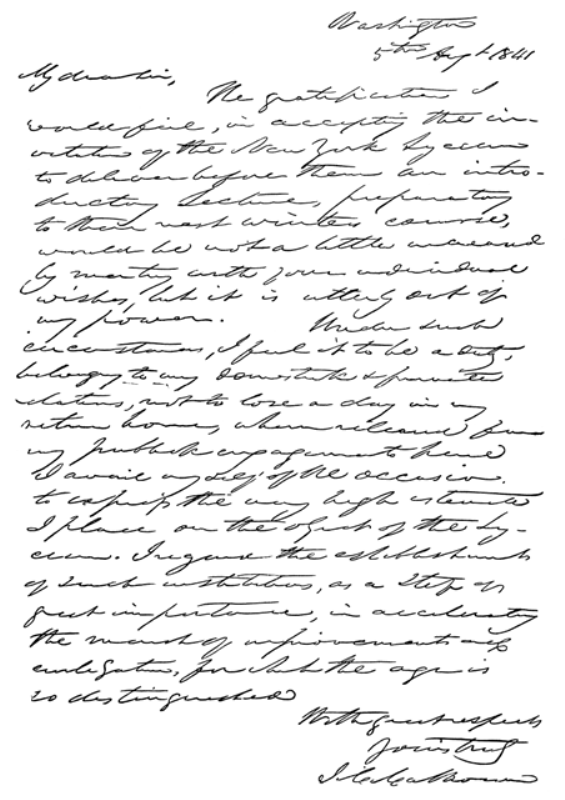 Washington
5th Augt 1841
My dear Sir,
The gratification I
would feel, in accepting the in-
vitation of the New York Lyceum
to deliver before them an intro-
ductory Lecture, preparatory
to their next winters course,
would be not a little increased
by meeting with your individual
wishes, but it is utterly out of
my power. Under such
circumstances, I feel it to be a duty,
belonging to my domestick & private
relations, not to lose a day in my
return home, when released from
my publick engagements here
I avail myself of the occasion
to express the very high estimate
I place on the object of the Ly-
ceum. I regard the establishments
of such institutions, as a step of
great importance, in accelerating
the march of improvements and
civilization, for which the age is
so distinguished
With great respects
Yours truly
J. C. Calhoun